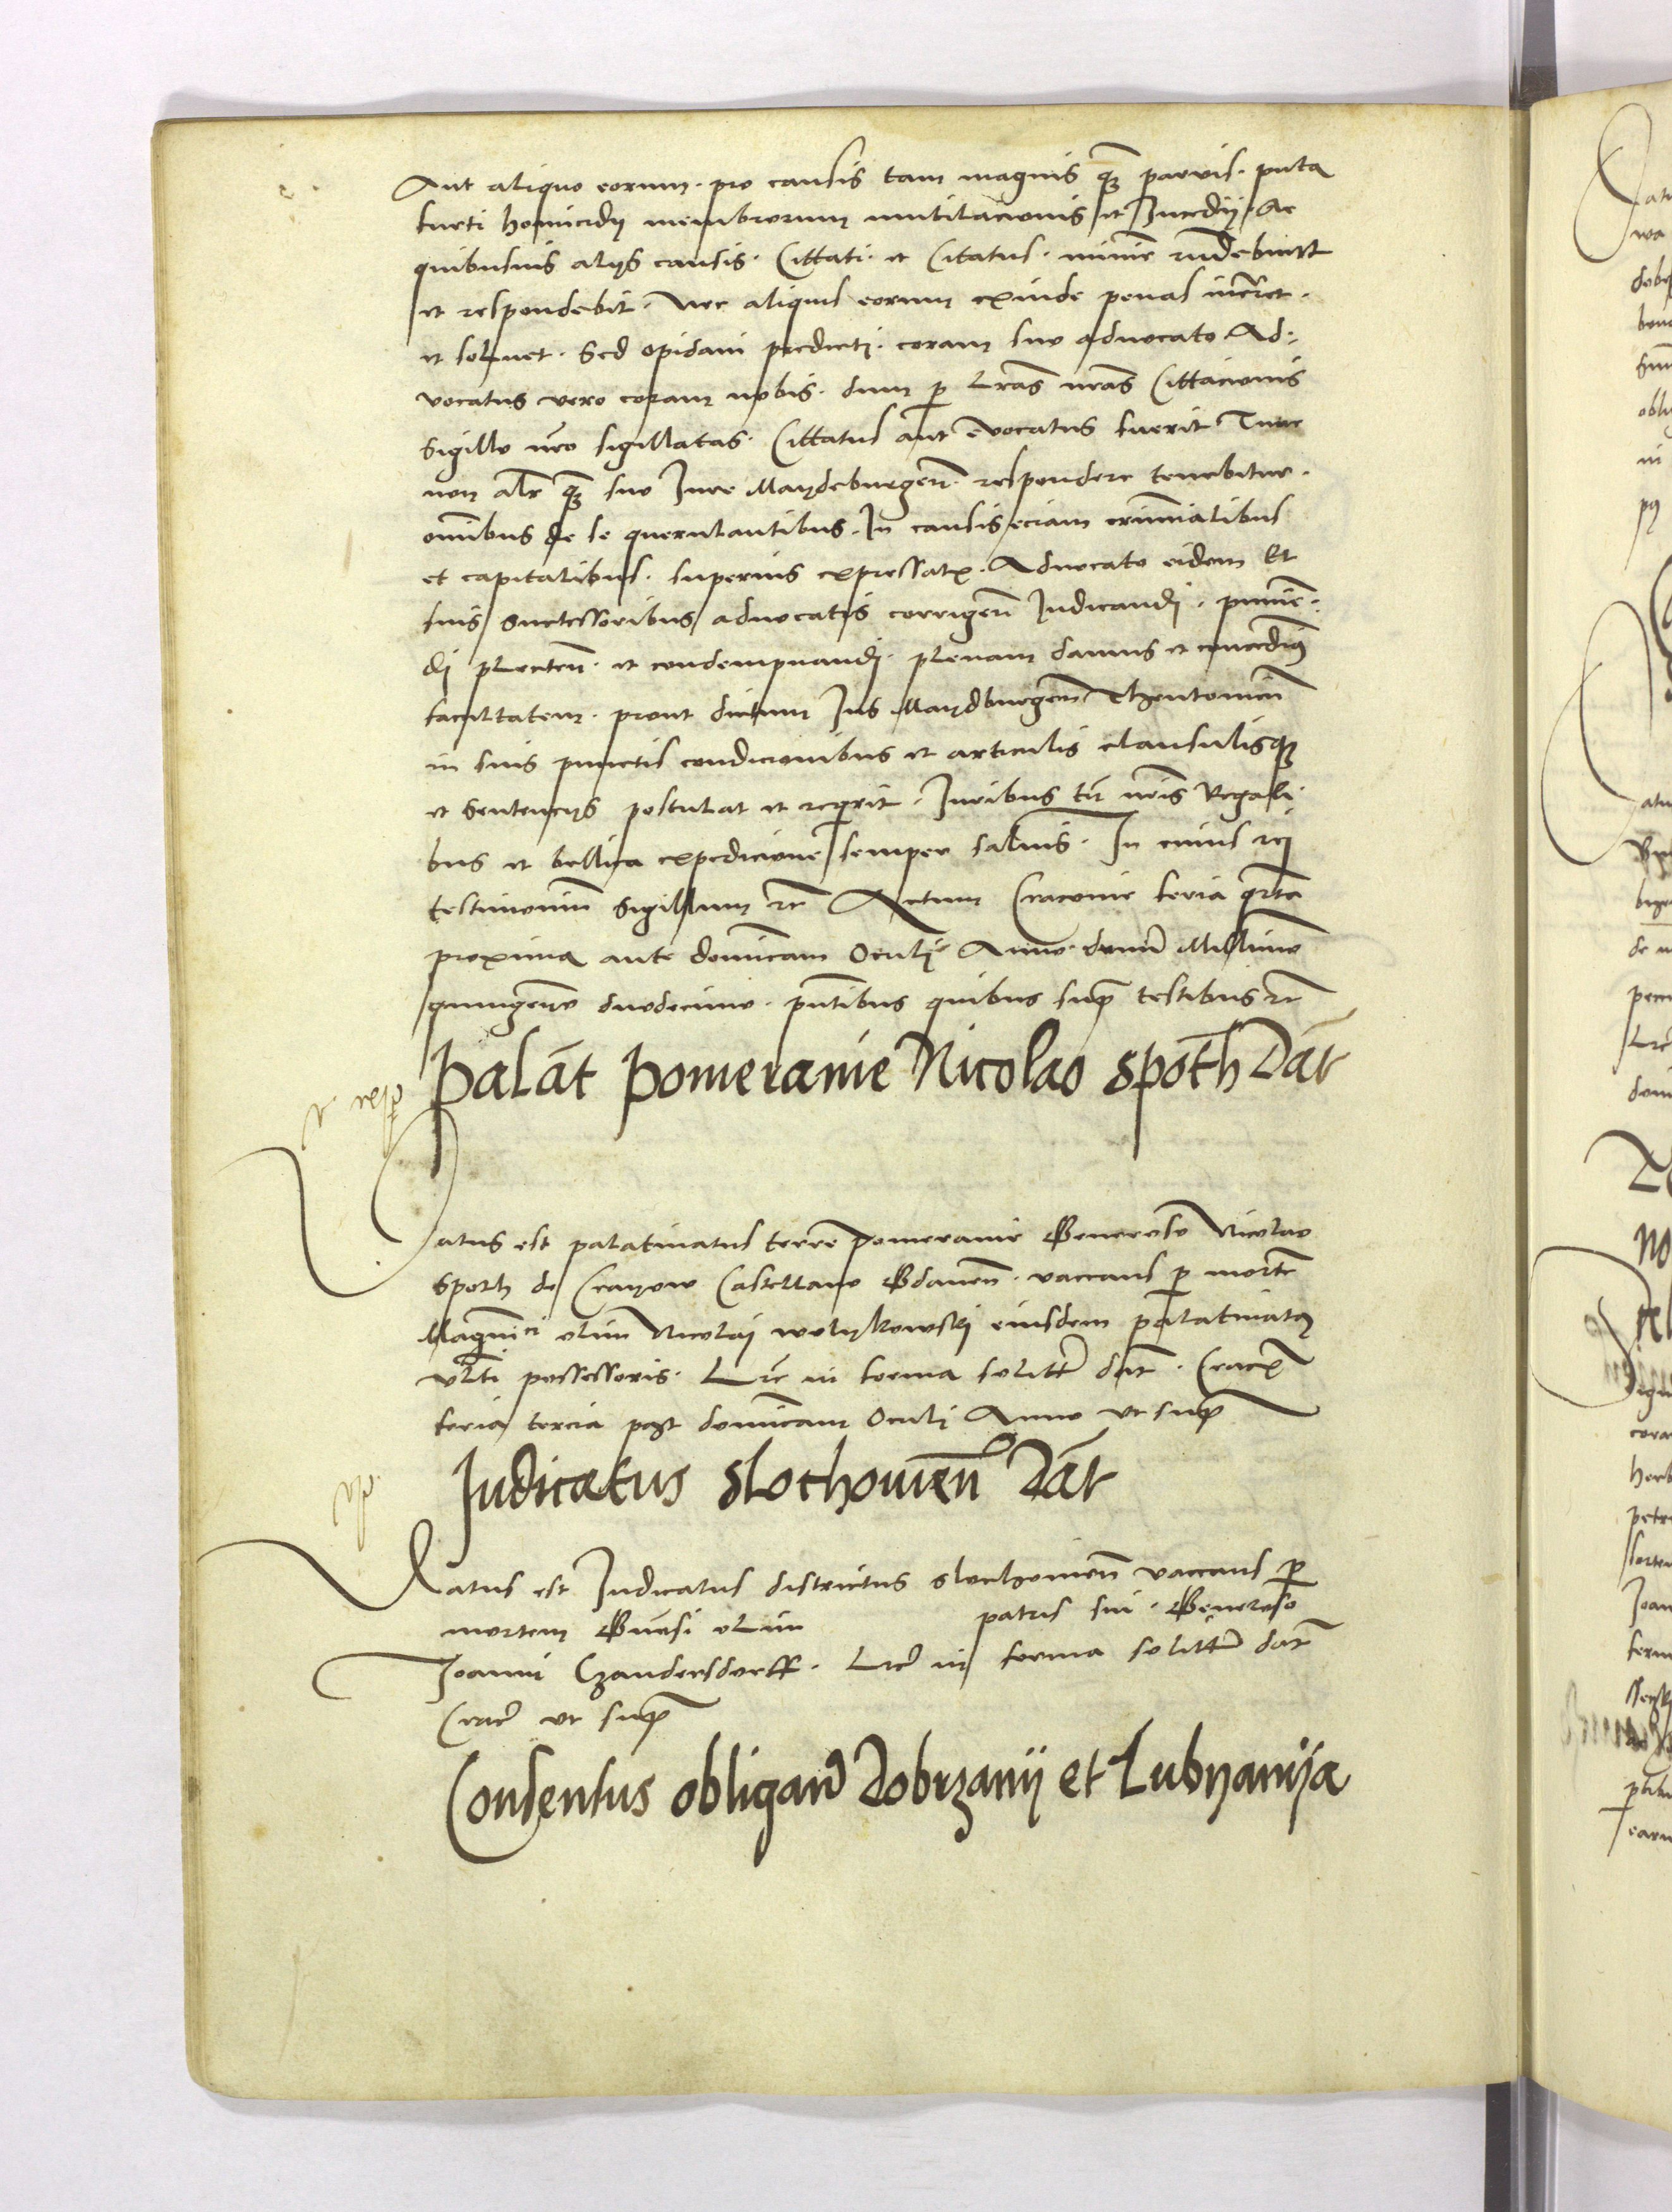 Aut aliquo eorum. pro causis tam magnis q̃ parvis. puta
furti homicidij membrorum mutilacionis et Incendij Ac
quibusvis alijs causis. Cittati. et Citatus. minime rñdebunt
et respondebit. Nec aliquis eorum exinde penas incurret.
et solvet. Sed opidani predicti. coram suo advocato Ad:
vocatus vero coram nobis. dum p lrãs nrãs Cittacionis
Sigillo nrõ sigillatas. Cittatus aut evocatus fuerit Tunc
non alr̃ q̃ suo Iure Maydeburgeñ. respondere tenebitur.
om̃ibus de se querulantibus. In causis eciam criminalibus
et capitalibus. superius expressatis. Advocato eidem Et
suis Successoribus advocatis corrigeñ Iudicandi. punien:
di plecteñ. et condempnandi. plenam damus et concedim9
facultatem. prout dictum Ius Maydburgeñ Theutonicũ
in suis punctis condicionibus et articulis clausulisq3
et Sentencijs postulat et reqrit. Iuribus tñ nrĩs Regali:
bus et bellica expedicione semper salvis. In cuius rei
testimoniũ Sigillum rc̃ Actum Cracovie feria qrta
proxima ante dominicam Oculi Anno domĩ Mill̃imo
quingen̄o duodecimo. pñtibus quibus sup̃ testibus rc̃
Palãt Pomeranie Nicolao Spoth Dãt
Datus est palatinatus terre pomeranie Generoso Nicolao
Spoth de Crayow Castellano Gdaneñ. vaccans p morte
Magnifici olim Nicolai wolykowski eiusdem palatinat9
ultĩ possessoris. Lrẽ in forma solitt̃ dat̃. Crac̃
feria tercia post dominicam Oculi Anno ut sup̃
Iudicatus Slochovieñ Dãt
Datus est Iudicatus districtus Slochovieñ vaccans p
mortem Gnẽsi olim patris sui. Generoso
Ioanni Czandersdorff. Lrẽ in forma solitt̃ dat̃
Crac̃ ut sup̃
Consensus obligand̃ Dobrzanij et Lubyanija